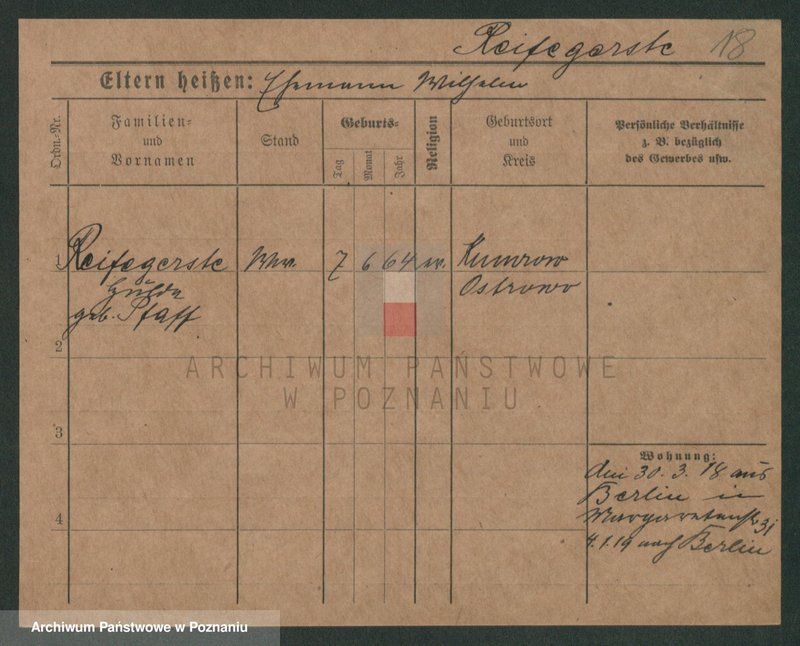 Reifegerste 18
Eltern heißen: Ehemann Wilhelm
Ordn.-Nr.
Familien-
und
Vornamen
Stand
Geburts-
Tag
Monat
Jahr
Religion
Geburtsort
und
Kreis
Persönliche Verhältnisse
z. B. bezüglich
des Gewerbes usw.
1 Reifegerste Ww. 7 6 64 ev.
Hulda Ostrowo
geb. Pfaff
2
ARCHIWUM PAŃSTWOWE
W POZNANIU
3
Wohnung:
30. 3. 18 aus
Berlin in
4 31
4.1.19 nach Berlin
Archiwum Państwowe w Poznaniu